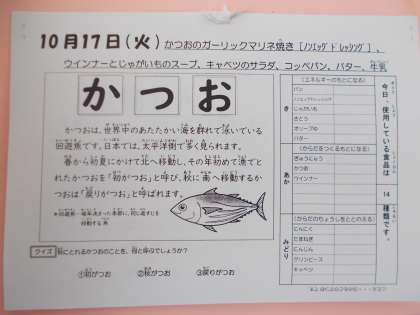 10月17日(火) かつおのガーリックマリネ焼き[ノンエッグドレッシング]、
ウインナーとじゃがいものスープ、キャベツのサラダ、コッペパン、バター、牛乳
かつお
かつおは、世界中のあたたかい海を群れて泳いでいる
回遊魚です。日本では、太平洋側で多く見られます。
春から初夏にかけて北へ移動し、その年初めて漁でと
れたかつおを「初がつお」と呼び、秋に南へ移動するか
つおは「戻りがつお」と呼ばれます。
クイズ 秋にとれるかつおのことを、何と呼ぶでしょうか?
①初がつお ②秋がつお ③戻りがつお
今日、使用している食品は 14 種類です。
き
(エネルギーのもとになる)
パン
ノンエッグドレッシング
じゃがいも
さとう
オリーブ油
バター
あか
(からだをつくるもとになる)
ぎゅうにゅう
かつお
ウインナー
みどり
(からだのちょうしをととのえる)
にんにく
たまねぎ
にんじん
グリンピース
キャベツ